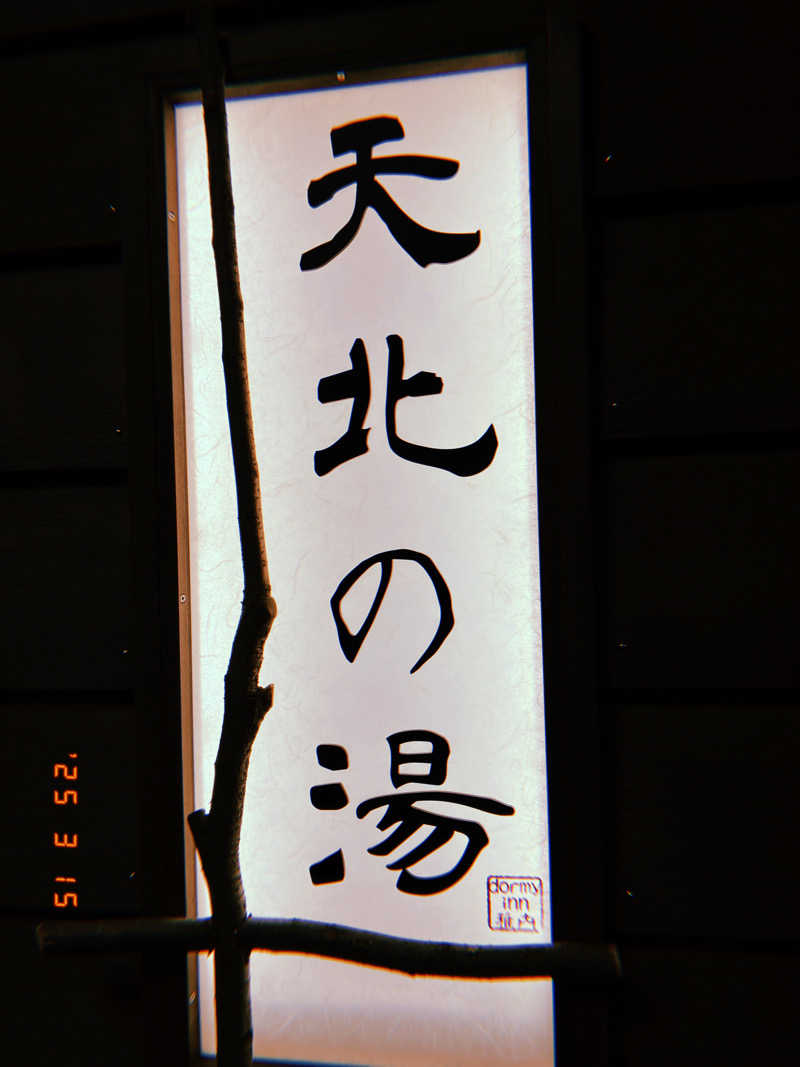 天北の湯
dormy
inn
稚内
'25 3 15